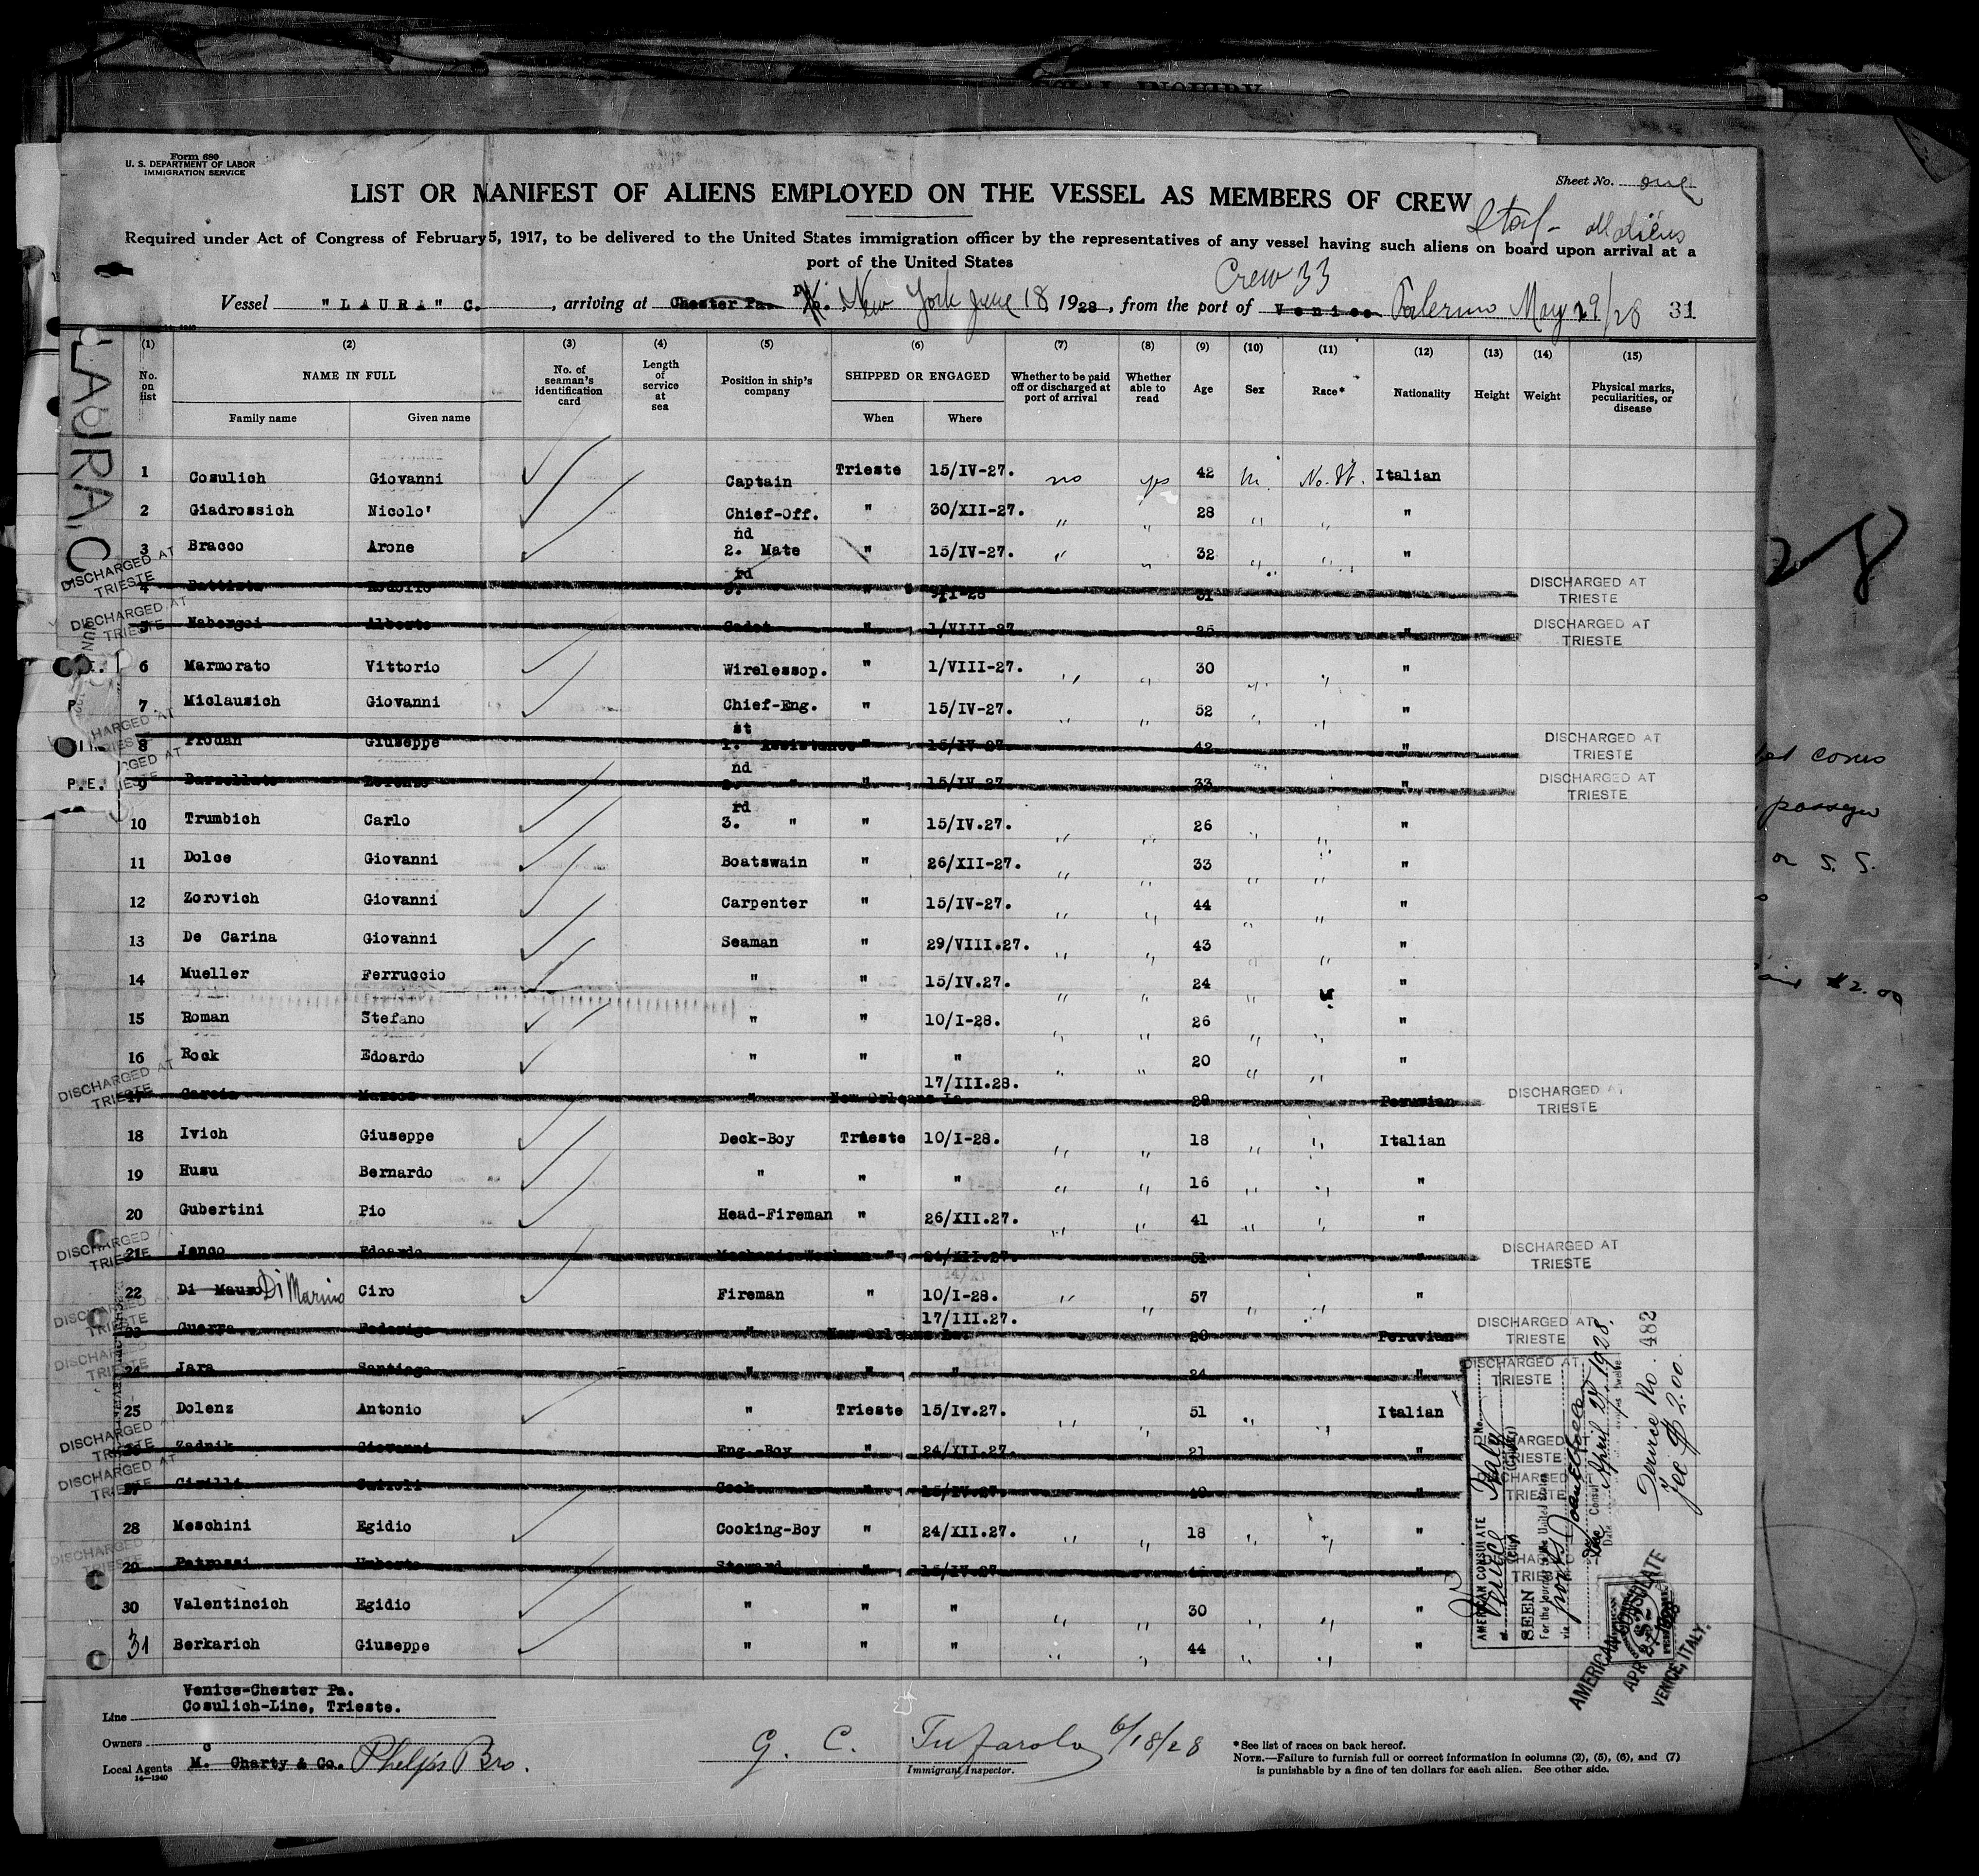 Form 680
U. S. DEPARTMENT OF LABOR
IMMIGRATION SERVICE
Sheet No. one
LIST OR MANIFEST OF ALIENS EMPLOYED ON THE VESSEL AS MEMBERS OF CREW
Ital - all aliens
Required under Act of Congress of February 5, 1917, to be delivered to the United States immigration officer by the representatives of any vessel having such aliens on board upon arrival at a
port of the United States
Crew 33
Vessel "LAURA" C. , arriving at Chester Pa. New York June 18 1928, from the port of Venice Palermo May 29/28 31
LAURA C
(1) (2) (3) (4) (5) (6) (7) (8) (9) (10) (11) (12) (13) (14) (15)
No. on list NAME IN FULL Family name Given name No. of seaman's identification card Length of service at sea Position in ship's company SHIPPED OR ENGAGED When Where Whether to be paid off or discharged at port of arrival Whether able to read Age Sex Race* Nationality Height Weight Physical marks, peculiarities, or disease
1 Cosulich Giovanni Captain Trieste 15/IV-27. no yes 42 m. No. It. Italian
2 Giadrossich Nicolo' Chief-Off. " 30/XII-27. " " 28 " " "
3 Bracco Arone 2.nd Mate " 15/IV-27. " " 32 " " "
DISCHARGED AT TRIESTE 4 Rodolfo 3.rd " 31 " DISCHARGED AT TRIESTE
DISCHARGED AT TRIESTE 5 Nabergoi Alberto Cadet " 1/VIII-27 25 " DISCHARGED AT TRIESTE
6 Marmorato Vittorio Wirelessop. " 1/VIII-27. " " 30 " " "
7 Miclausich Giovanni Chief-Eng. " 15/IV-27. " " 52 " " "
8 Prodan Giuseppe 1.st Assistance " 15/IV-27 42 " DISCHARGED AT TRIESTE
P.E. 9 Lorenzo 2.nd " " 15/IV-27 33 " DISCHARGED AT TRIESTE
10 Trumbich Carlo 3.rd " " 15/IV.27. " " 26 " " "
11 Dolce Giovanni Boatswain " 26/XII-27. " " 33 " " "
12 Zorovich Giovanni Carpenter " 15/IV-27. " " 44 " " "
13 De Carina Giovanni Seaman " 29/VIII.27. " " 43 " " "
14 Mueller Ferruccio " " 15/IV.27. " " 24 " " "
15 Roman Stefano " " 10/I-28. " " 26 " " "
16 Rock Edoardo " " " " " 20 " " "
DISCHARGED AT TRIESTE 17 Garcia Marcos " New Orleans La. 17/III.28. 29 Peruvian DISCHARGED AT TRIESTE
18 Ivich Giuseppe Deck-Boy Trieste 10/I-28. " " 18 " " Italian
19 Husu Bernardo " " " " " 16 " " "
20 Gubertini Pio Head-Fireman " 26/XII.27. " " 41 " " "
DISCHARGED TRIESTE 21 Jenco Edoardo Mechanic-Workman " 24/XII.27. 51 " DISCHARGED AT TRIESTE
22 Di Mauro Di Marino Ciro Fireman " 10/I-28. " " 57 " " "
DISCHARGED AT TRIESTE 23 Guerra Federigo " New Orleans La. 17/III.27. 20 Peruvian DISCHARGED AT TRIESTE
DISCHARGED TRIESTE 24 Jara Santiago " " " 24 " DISCHARGED AT TRIESTE
25 Dolenz Antonio " Trieste 15/Iv.27. " " 51 " " Italian
DISCHARGED TRIESTE Zadnik Giovanni Eng.-Boy " 24/XII.27. 21 " DISCHARGED AT TRIESTE
DISCHARGED AT TRIESTE Cook " 15/IV.27. " DISCHARGED AT TRIESTE
28 Meschini Egidio Cooking-Boy " 24/XII.27. " " 18 " " "
DISCHARGED AT TRIESTE 29 Patrossi Umberto Steward " 15/IV.27 "
30 Valentincich Egidio " " " " " 30 " " "
31 Berkarich Giuseppe " " " " " 44 " " "
AMERICAN CONSULATE No.
at Venice Italy
(City) (Country)
SEEN
For the journey to the United States
via
Vice Consul
Date April 27, 1928.
Service No. 482
Fee $ 2.00.
AMERICAN CONSULATE
APR 27 1928
VENICE, ITALY.
Venice-Chester Pa.
Line Cosulich-Line, Trieste.
Owners
Local Agents Mc Charty & Co. Phelps Bro.
14—1240
G. C. Tufarolo 6/18/28
Immigrant Inspector.
*See list of races on back hereof.
NOTE.—Failure to furnish full or correct information in columns (2), (5), (6), and (7)
is punishable by a fine of ten dollars for each alien. See other side.
28
passage
or S. S.
$2.00